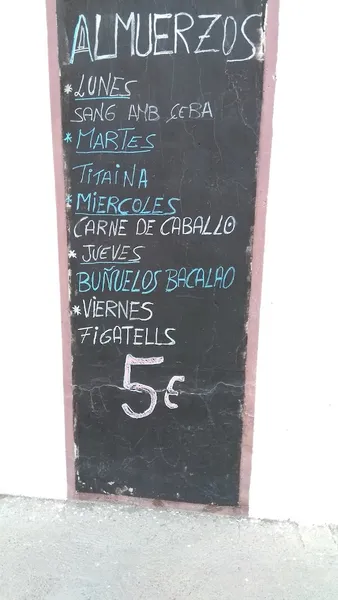 ALMUERZOS
*LUNES
SANG AMB CEBA
*MARTES
TITAINA
*MIERCOLES
CARNE DE CABALLO
*JUEVES
BUÑUELOS BACALAO
*VIERNES
FIGATELLS
5€